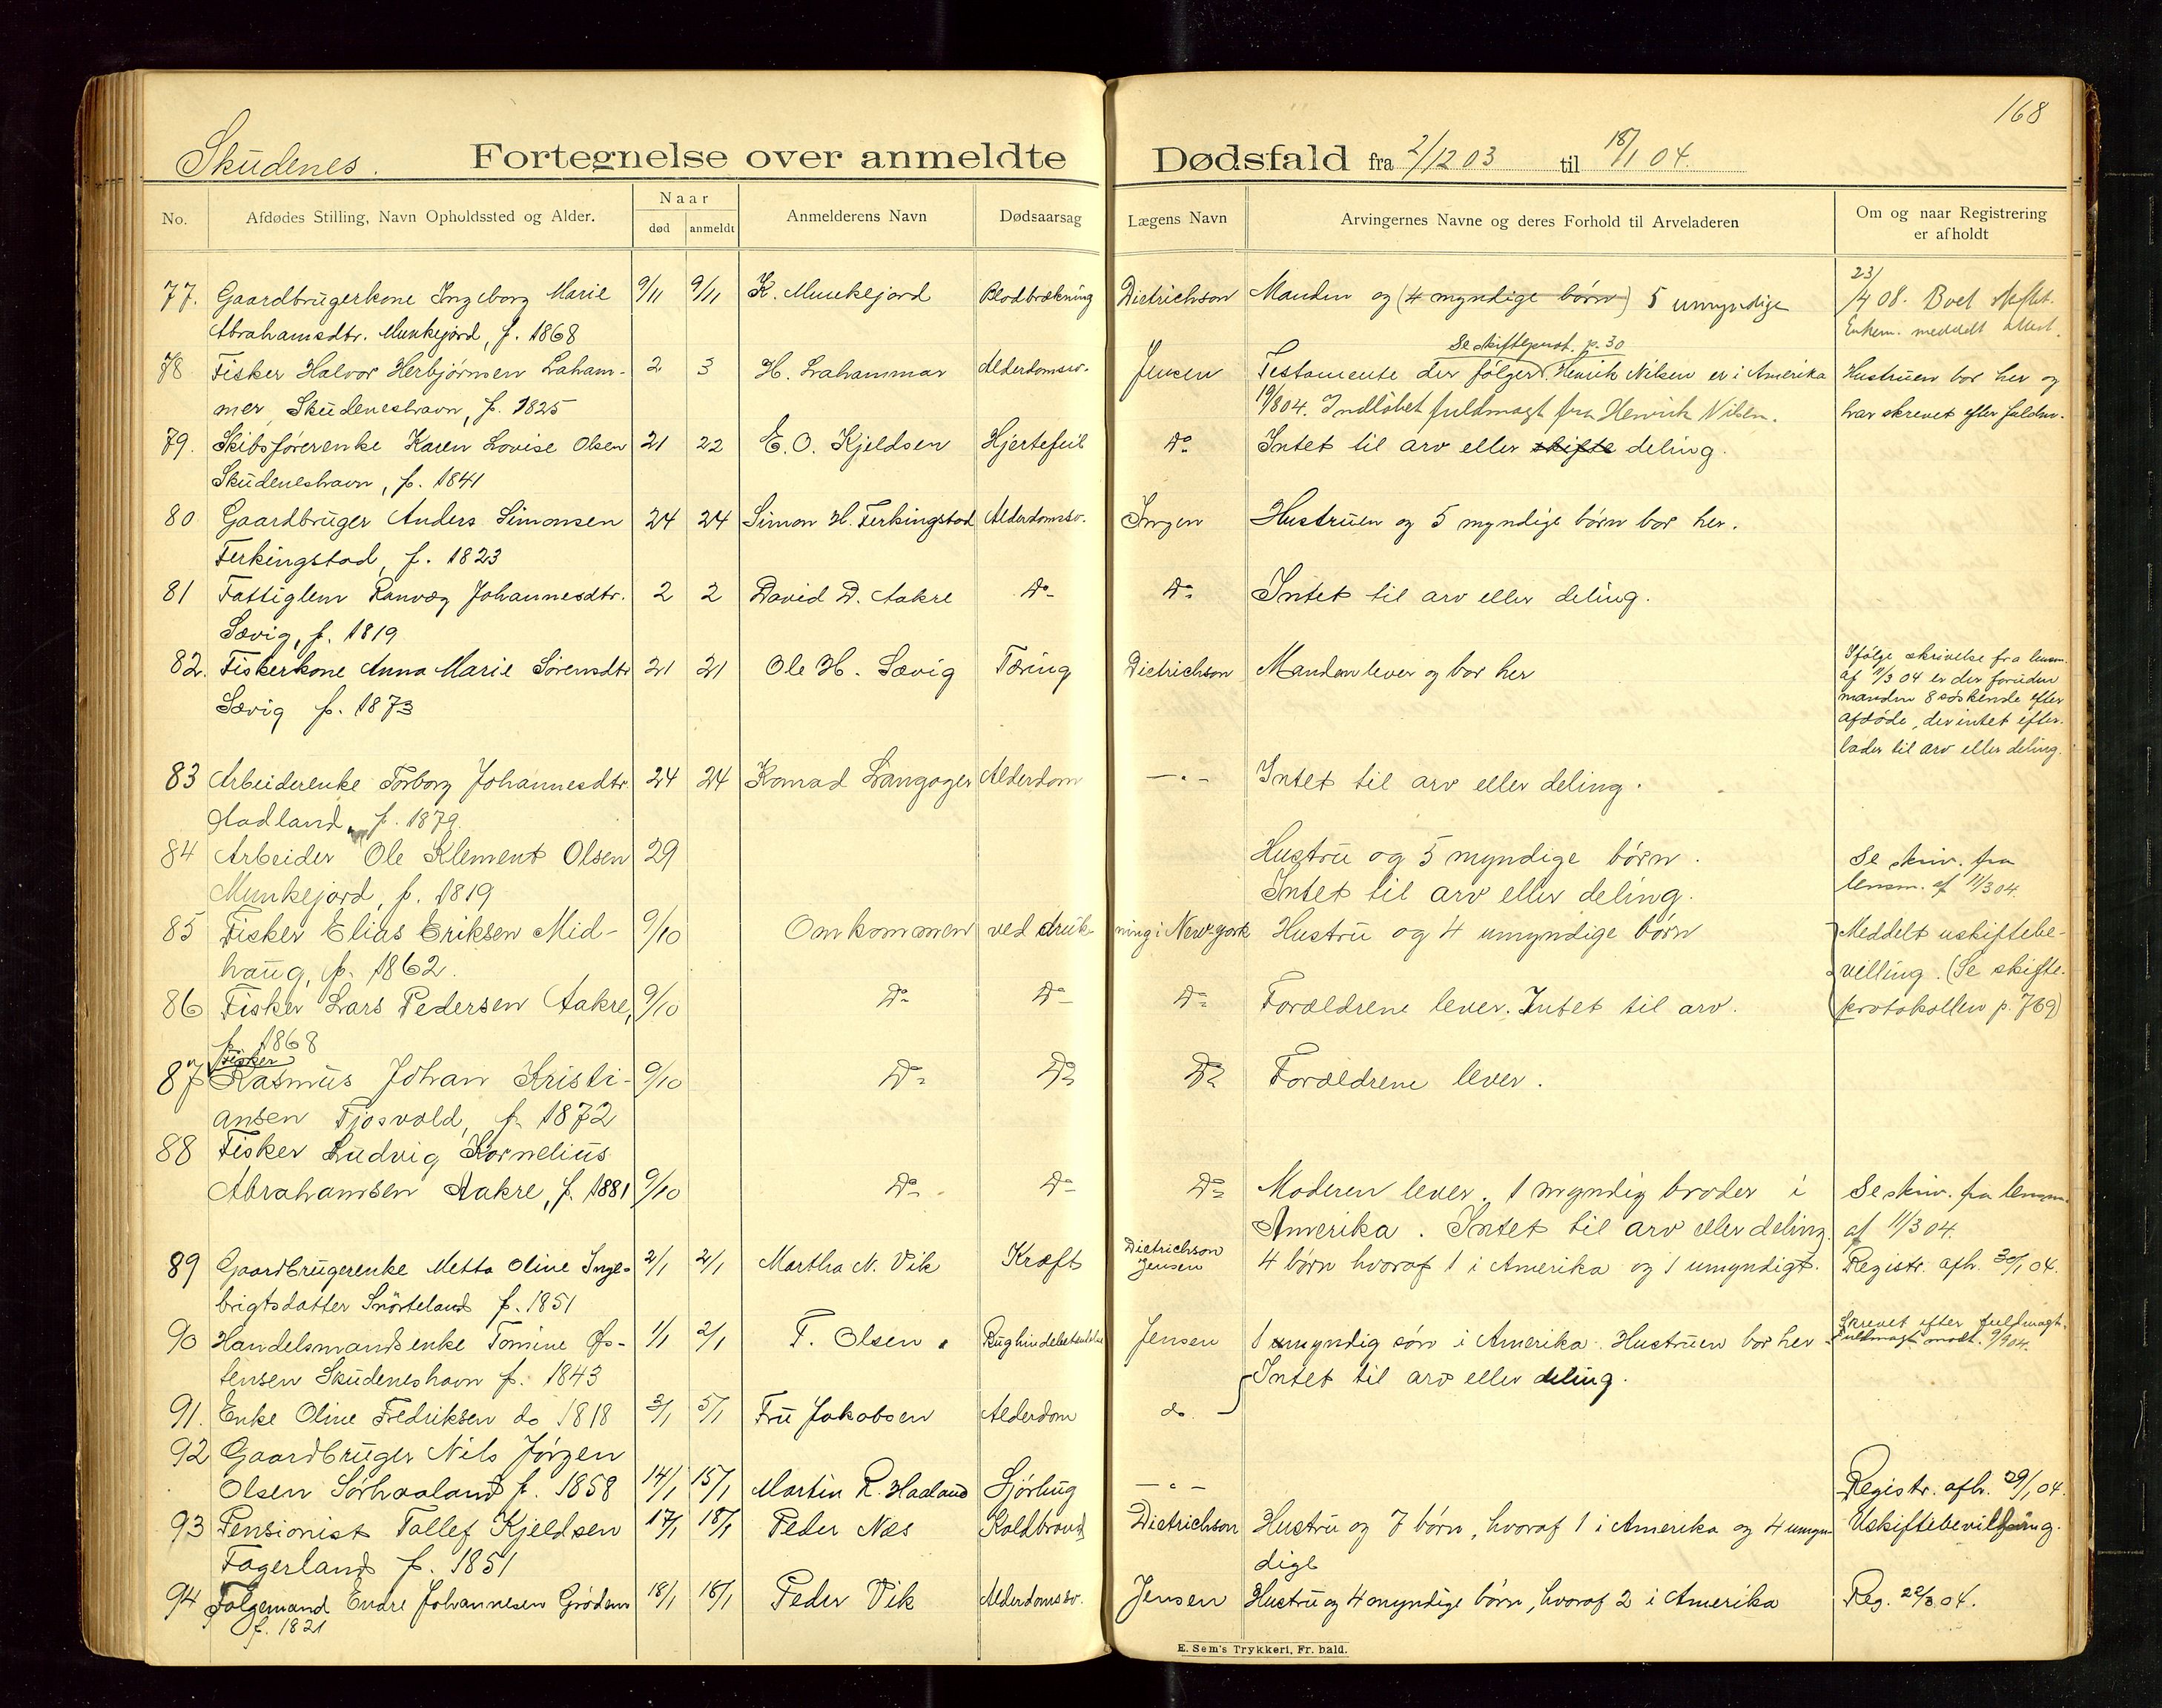 168
Skudenes. Fortegnelse over anmeldte Dødsfald fra 2/12 03 til 18/1 04.
No. Afdødes Stilling, Navn Opholdssted og Alder. Naar død anmeldt Anmelderens Navn Dødsaarsag Lægens Navn Arvingernes Navne og deres Forhold til Arveladeren Om og naar Registrering er afholdt
77. Gaardbrugerkone Ingeborg Marie 9/11 9/11 K. Munkejord Blodbrækning Dietrichson Manden og (4 myndige børn) 5 umyndige 23/4 08. Boet skiftet.
Abrahamsdtr. Munkejord, f. 1868 Enkem. meddelt attest.
Se skifteprot. p. 30
78 Fisker Halvor Herbjørnsen Laham- 2 3 H. Lahammar Alderdomssv. Jensen Testamente der følger. Henrik Nilsen er i Amerika Hustruen bor her og
mer, Skudeneshavn, f. 1825 19/8 04. Indløbet fuldmagt fra Henrik Nilsen. har skrevet efter fuldm.
79. Skibsførerenke Karen Lovise Olsen 21 22 E. O. Kjeldsen Hjertefeil Do Intet til arv eller skifte deling.
Skudeneshavn, f. 1841
80 Gaardbruger Anders Simonsen 24 24 Simon H. Ferkingstad Alderdomssv. Ingen Hustruen og 5 myndige børn bor her.
Ferkingstad, f. 1823
81 Fattiglem Ranvæg Johannesdtr. 2 2 David D. Aakre Do Do Intet til arv eller deling.
Sævig, f. 1819
82. Fiskerkone Anna Marie Sørensdtr 21 21 Ole H. Sævig Tæring Dietrichson Manden lever og bor her Ifølge skrivelse fra lensm.
Sævig f. 1873 af 11/3 04 er der foruden
manden 8 søskende efter
afdøde, der intet efter-
lader til arv eller deling.
83 Arbeiderenke Torborg Johannesdtr. 24 24 Konrad Langager Alderdom — " — Intet til arv eller deling.
Aadland, f. 1879.
84 Arbeider Ole Klement Olsen 29 Hustru og 5 myndige børn. Se skriv. fra
Munkejord, f. 1819 Intet til arv eller deling. lensm. af 11/3 04.
85 Fisker Elias Eriksen Mid- 9/10 Omkommen ved druk- ning i New-york Hustru og 4 umyndige børn Meddelt uskiftebe-
haug, f. 1862. villing. (Se skifte-
86 Fisker Lars Pedersen Aakre, 9/10 Do Do Do Forældrene lever. Intet til arv. protokollen p. 769)
f. 1868
Fisker
87 Rasmus Johan Kristi- 9/10 Do Do Do Forældrene lever.
ansen Tjosvold, f. 1872
88 Fisker Ludvig Kornelius
Abrahamsen Aakre, f. 1881 9/10 Do Do Do Moderen lever. 1 myndig broder i Se skriv. fra lensm.
Amerika. Intet til arv eller deling. af 11/3 04.
89 Gaardbrugerenke Metta Oline Inge- 2/1 2/1 Martha N. Vik Kræft Dietrichson Jensen 4 børn hvoraf 1 i Amerika og 1 umyndigt. Registr. afh. 30/1 04.
brigtsdatter Snørteland f. 1851
90 Handelsmandsenke Tomine Øs- 1/1 2/1 T. Olsen. Jensen 1 myndig søn i Amerika. Hustruen bor her Skrevet efter fuldmagt.
tensen Skudeneshavn f. 1843 Intet til arv eller deling. Fuldmagt modt. 9/9 04.
91. Enke Oline Fredriksen do 1818 3/1 5/1 Fru Jakobsen Alderdom do.
92 Gaardbruger Nils Jørgen
Olsen Sørhaaland f. 1858 14/1 15/1 Martin R. Haaland — " — Registr. afh. 29/1 04.
93 Pensionist Tollef Kjeldsen 17/1 18/1 Peder Næs Koldbrand Dietrichson Hustru og 7 børn, hvoraf 1 i Amerika og 4 umyn- Uskiftebevilling.
Fagerland f. 1851 dige
94 Følgemand Endre Johannesen Grødem 18/1 18/1 Peder Vik Alderdomssv. Jensen Hustru og 4 myndige børn, hvoraf 2 i Amerika Reg. 22/3 04.
f. 1821
E. Sem's Trykkeri, Fr. hald.